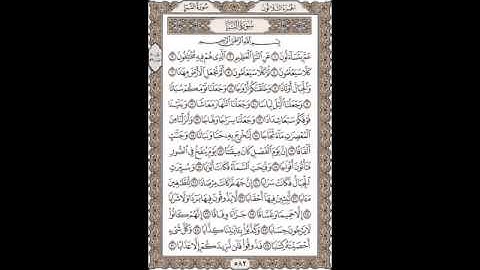 الجزء الثلاثون
سورة النبأ
سُورَةُ النَّبَإِ
بِسْمِ اللَّهِ الرَّحْمَٰنِ الرَّحِيمِ
عَمَّ يَتَسَآءَلُونَ ١ عَنِ ٱلنَّبَإِ ٱلْعَظِيمِ ٢ ٱلَّذِى هُمْ فِيهِ مُخْتَلِفُونَ ٣
كَلَّا سَيَعْلَمُونَ ٤ ثُمَّ كَلَّا سَيَعْلَمُونَ ٥ أَلَمْ نَجْعَلِ ٱلْأَرْضَ مِهَٰدًا ٦
وَٱلْجِبَالَ أَوْتَادًا ٧ وَخَلَقْنَٰكُمْ أَزْوَٰجًا ٨ وَجَعَلْنَا نَوْمَكُمْ سُبَاتًا
٩ وَجَعَلْنَا ٱلَّيْلَ لِبَاسًا ١٠ وَجَعَلْنَا ٱلنَّهَارَ مَعَاشًا ١١ وَبَنَيْنَا
فَوْقَكُمْ سَبْعًا شِدَادًا ١٢ وَجَعَلْنَا سِرَاجًا وَهَّاجًا ١٣ وَأَنزَلْنَا مِنَ
ٱلْمُعْصِرَٰتِ مَآءً ثَجَّاجًا ١٤ لِّنُخْرِجَ بِهِۦ حَبًّا وَنَبَاتًا ١٥ وَجَنَّٰتٍ
أَلْفَافًا ١٦ إِنَّ يَوْمَ ٱلْفَصْلِ كَانَ مِيقَٰتًا ١٧ يَوْمَ يُنفَخُ فِى ٱلصُّورِ
فَتَأْتُونَ أَفْوَاجًا ١٨ وَفُتِحَتِ ٱلسَّمَآءُ فَكَانَتْ أَبْوَٰبًا ١٩ وَسُيِّرَتِ
ٱلْجِبَالُ فَكَانَتْ سَرَابًا ٢٠ إِنَّ جَهَنَّمَ كَانَتْ مِرْصَادًا ٢١ لِّلطَّٰغِينَ
مَـَٔابًا ٢٢ لَّٰبِثِينَ فِيهَآ أَحْقَابًا ٢٣ لَّا يَذُوقُونَ فِيهَا بَرْدًا وَلَا شَرَابًا
٢٤ إِلَّا حَمِيمًا وَغَسَّاقًا ٢٥ جَزَآءً وِفَاقًا ٢٦ إِنَّهُمْ كَانُوا۟
لَا يَرْجُونَ حِسَابًا ٢٧ وَكَذَّبُوا۟ بِـَٔايَٰتِنَا كِذَّابًا ٢٨ وَكُلَّ شَىْءٍ
أَحْصَيْنَٰهُ كِتَٰبًا ٢٩ فَذُوقُوا۟ فَلَن نَّزِيدَكُمْ إِلَّا عَذَابًا ٣٠
٥٨٢